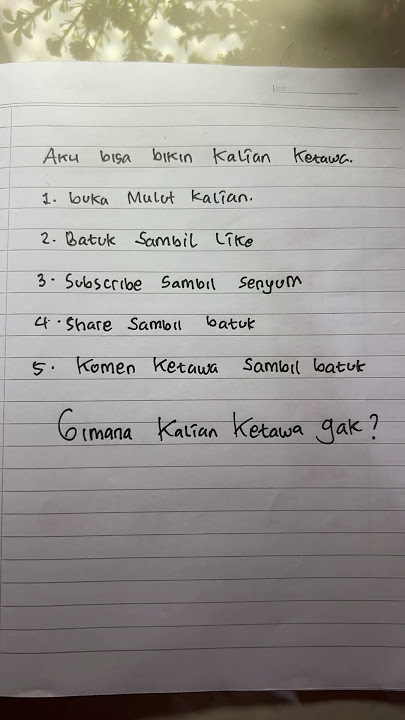 Date :
Aku bisa bikin kalian ketawa.
1. buka Mulut kalian.
2. Batuk Sambil Like
3. Subscribe Sambil Senyum
4. Share Sambil batuk
5. Komen Ketawa Sambil batuk
Gimana Kalian Ketawa gak?